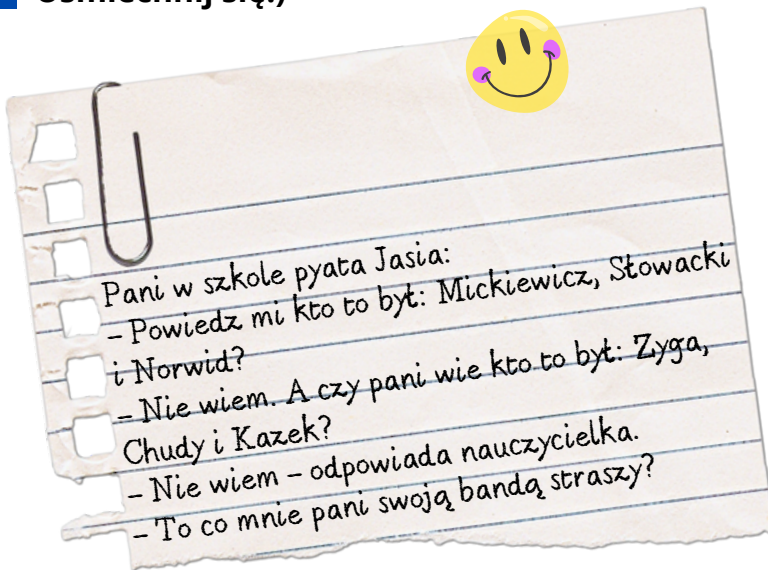 Uśmiechnij się:)
Pani w szkole pyata Jasia:
– Powiedz mi kto to był: Mickiewicz, Słowacki
i Norwid?
– Nie wiem. A czy pani wie kto to był: Zyga,
Chudy i Kazek?
– Nie wiem – odpowiada nauczycielka.
– To co mnie pani swoją bandą straszy?